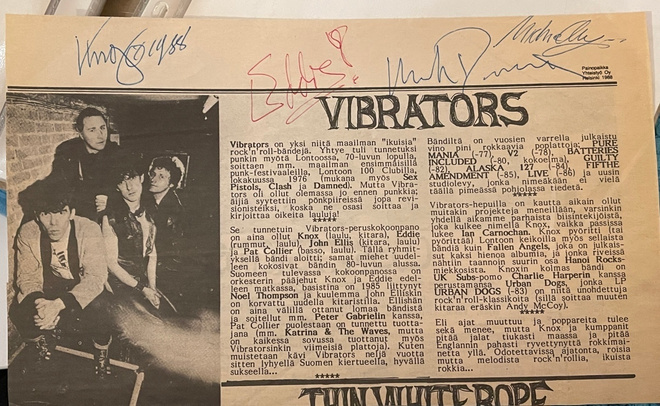 Knox 1988
Eddie!
Painopaikka
Yhteistyö Oy
Helsinki 1988
VIBRATORS
Vibrators on yksi niitä maailman "ikuisia"
rock'n'roll-bändejä. Yhtye tuli tunnetuksi
punkin myötä Lontoossa, 70-luvun lopulla,
soittaen mm. maailman ensimmäisillä
punk-festivaaleilla, Lontoon 100 Clubilla
lokakuussa 1976 (mukana myös Sex
Pistols, Clash ja Damned). Mutta Vibra-
tors oli ollut olemassa jo ennen punkkia;
äijiä syytettiin pönkpiireissä jopa revi-
sionisteiksi, koska ne osasi soittaa ja
kirjoittaa oikeita lauluja!
*****
Se tunnetuin Vibrators-peruskokoonpano
on aina ollut Knox (laulu, kitara), Eddie
(rummut, laulu), John Ellis (kitara, laulu)
ja Pat Collier (basso, laulu). Tällä ryhmit-
yksellä bändi aloitti; samat miehet uudel-
leen kokosivat bändin 80-luvun alussa.
Suomeen tulevassa kokoonpanossa on
orkesterin pääjehut Knox ja Eddie edel-
leen matkassa, basistina on 1985 liittynyt
Noel Thompson ja kuulemma John Elliskin
on korvattu uudella kitaristilla. Ellishän
on aina välillä ottanut lomaa bändistä
ja soitellut mm. Peter Gabrielin kanssa,
Pat Collier puolestaan on tunnettu tuotta-
jana (mm. Katrina & The Waves, mutta
on kaikessa sovussa tuottanut myös
Vibratorsinkin viimeisiä plattoja). Kuten
muistetaan kävi Vibrators neljä vuotta
sitten lyhyellä Suomen kiertueella, hyvällä
sukseella...
*****
Bändiltä on vuosien varrella julkaistu
vino pini rokkaavia poplattoja: PURE
MANIA (-77), V2 (-78), BATTERIES
INCLUDED (-80, kokoelma), GUILTY
(-82), ALASKA 127 (-84), FIFTH
AMENDMENT (-85), LIVE (-86) ja uusin
studiolevy, jonka nimeäkään ei vielä
täällä pimeässä pohjolassa tiedetä.
*****
Vibrators-hepuilla on kautta aikain ollut
muitakin projekteja meneillään, varsinkin
yhdellä aikamme parhaista biisintekijöistä,
joka kulkee nimellä Knox, vaikka passissa
lukee Ian Carnochan. Knox pyöritti (tai
pyörittää) Lontoon keikoilla myös sellaista
bändiä kuin Fallen Angels, joka on julkais-
sut kaksi hienoa albumia, ja jonka riveissä
nähtiin taannoin suurin osa Hanoi Rocks-
miekkosista. Knoxin kolmas bändi on
UK Subs-pomo Charlie Harperin kanssa
perustamansa Urban Dogs, jonka LP
URBAN DOGS (-83) on niitä unohdettuja
rock'n'roll-klassikoita (sillä soittaa muuten
kitaraa eräskin Andy McCoy).
*****
Eli ajat muuttuu ja poppareita tulee
sekä menee, mutta Knox ja kumppanit
pitää jalat tiukasti maassa ja pitää
Englannin pahasti pyyvettynyttä rokkimai-
netta yllä. Odotettavissa ajatonta, roisia
mutta melodista rock'n'rollia, ikuista
rokkia...
THIN WHITE ROPE